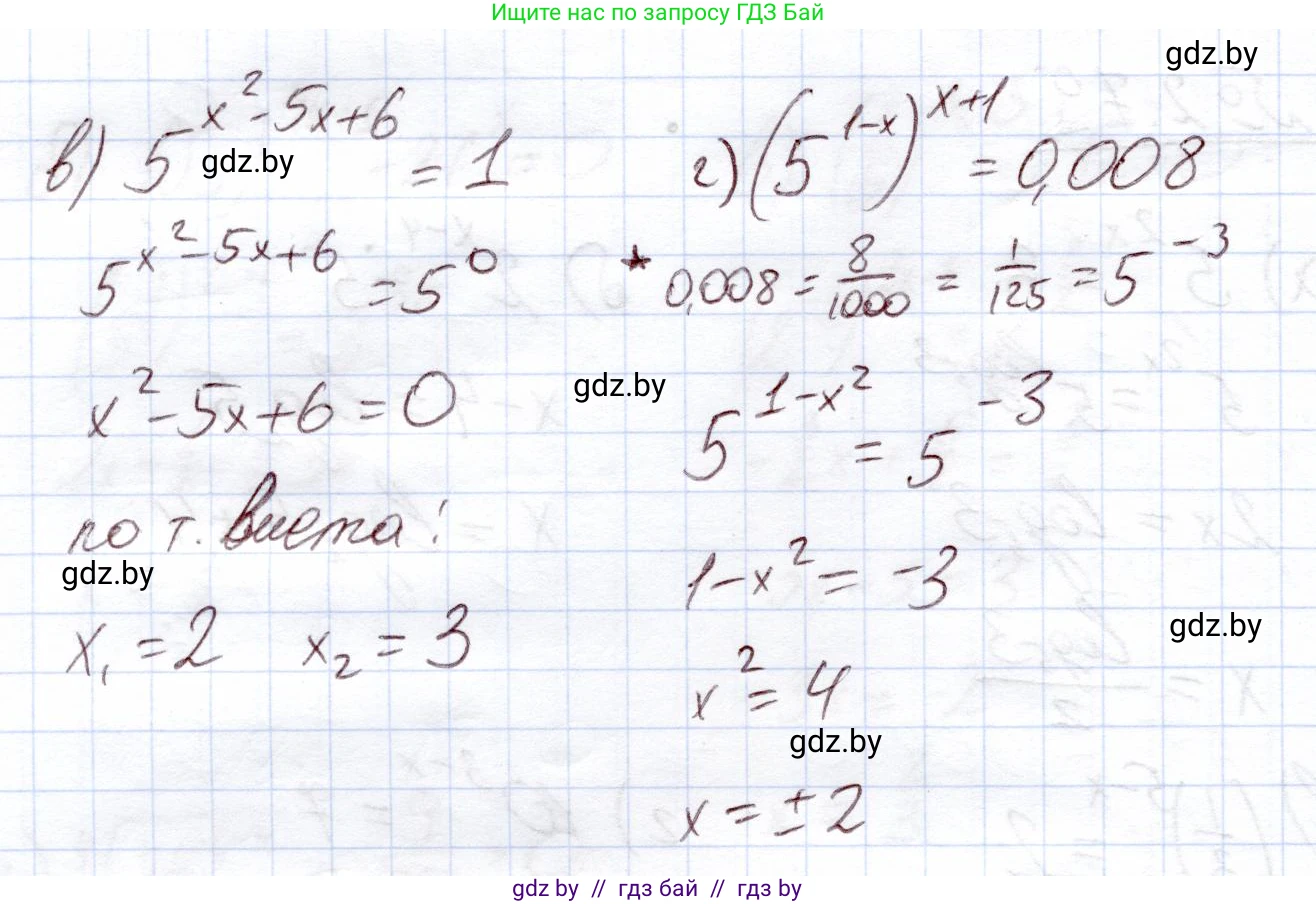 Ищите нас по запросу ГДЗ Бай
gdz.by
в) 5^(x²-5x+6) = 1
gdz.by
5^(x²-5x+6) = 5⁰
x²-5x+6=0
по т. Виета:
gdz.by
x₁ = 2 x₂ = 3
г) (5^(1-x))^(x+1) = 0,008
* 0,008 = 8/1000 = 1/125 = 5⁻³
gdz.by
5^(1-x²) = 5⁻³
1-x² = -3
gdz.by
x² = 4
gdz.by
x = ±2
gdz by // гдз бай // гдз by